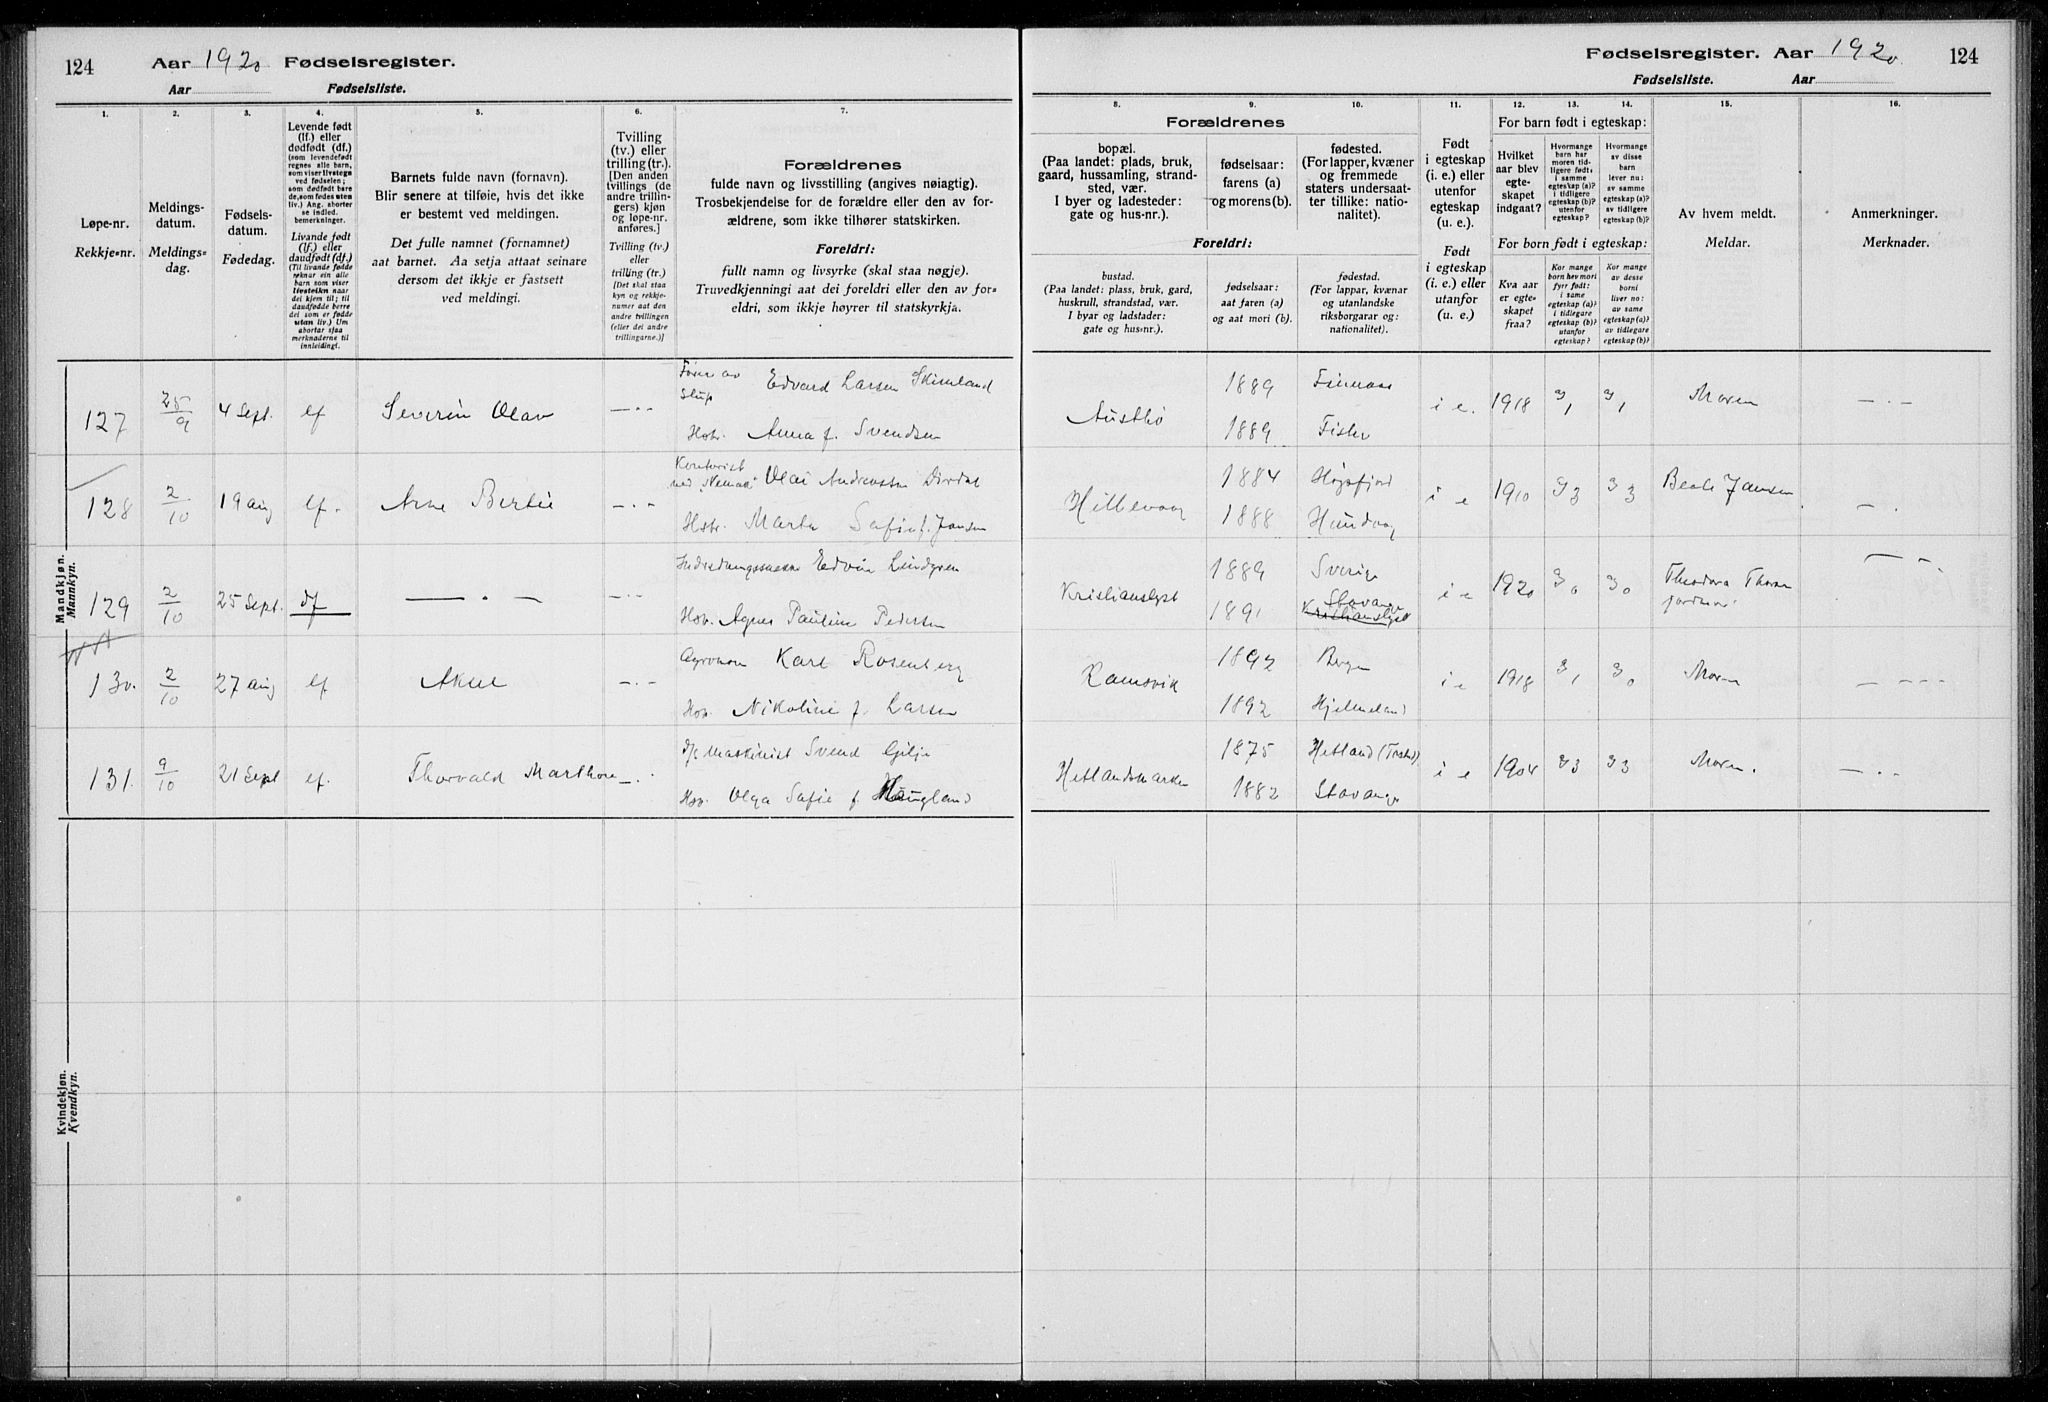 124
Aar 1920 Fødselsregister.
Aar Fødselsliste.
Fødselsregister. Aar 1920
Fødselsliste. Aar
124
1. 2. 3. 4. 5. 6. 7.
Løpe-nr.
Rekkje-nr.
Meldings-
datum.
Meldings-
dag.
Fødsels-
datum.
Fødedag.
Levende født
(lf.) eller
dødfødt (df.)
(som levendefødt
regnes alle barn,
som viser livstegn
ved fødselen;
som dødfødt bare
de, som fødes uten
liv.) Ang. aborter
se indled.
bemerkninger.
Livande født
(lf.) eller
daudfødt (df.)
(Til livande fødde
reknar ein alle
barn som viser
livsteikn naar
dei kjem til; til
daudfødde berre
dei som er fødde
utan liv.) Um
abortar sjaa
merknaderne til
innleidingi.
Barnets fulde navn (fornavn).
Blir senere at tilføie, hvis det ikke
er bestemt ved meldingen.
Det fulle namnet (fornamnet)
aat barnet. Aa setja attaat seinare
dersom det ikkje er fastsett
ved meldingi.
Tvilling
(tv.) eller
trilling (tr.).
[Den anden
tvillings (de
andre trillin-
gers) kjøn
og løpe-nr.
anføres.]
Tvilling (tv.)
eller
trilling (tr.)
[Det skal staa
kyn og rekkje-
numer aat den
andre tvillingen
(eller dei andre
trillingarne.)]
Forældrenes
fulde navn og livsstilling (angives nøiagtig).
Trosbekjendelse for de forældre eller den av for-
ældrene, som ikke tilhører statskirken.
Foreldri:
fullt namn og livsyrke (skal staa nøgje).
Truvedkjenningi aat dei foreldri eller den av for-
eldri, som ikkje høyrer til statskyrkja.
8. 9. 10. 11. 12. 13. 14. 15. 16.
Forældrenes
bopæl.
(Paa landet: plads, bruk,
gaard, hussamling, strand-
sted, vær.
I byer og ladesteder:
gate og hus-nr.).
fødselsaar:
farens (a)
og morens (b).
fødested.
(For lapper, kvæner
og fremmede
staters undersaat-
ter tillike: natio-
nalitet).
Foreldri:
bustad.
(Paa landet: plass, bruk, gard,
huskrull, strandstad, vær.
I byar og ladstader:
gate og hus-nr.).
fødselsaar:
aat faren (a)
og aat mori (b).
fødestad.
(For lappar, kvænar
og utanlandske
riksborgarar og:
nationalitet).
Født
i egteskap
(i. e.) eller
utenfor
egteskap
(u. e.).
Født
i egteskap
(i. e.) eller
utanfor
(u. e.)
For barn født i egteskap:
Hvilket
aar blev
egte-
skapet
indgaat?
Hvormange
barn har
moren tid-
ligere født:
i samme
egteskap (a)?
i tidligere
egteskap (b)?
utenfor
egteskap?
Hvormange
av disse
barn
lever nu:
av samme
egteskap (a)?
av tidligere
egteskap (b)?
For born født i egteskap:
Kva aar
er egte-
skapet
fraa?
Kor mange
born hev mori
fyrr født:
i same
egteskap (a)?
i tidlegare
egteskap (b)?
utanfor
egteskap?
Kor mange
av desse
borni
liver no:
av same
egteskap (a)?
av tidlegare
egteskap (b)?
Av hvem meldt.
Meldar.
Anmerkninger.
Merknader.
Mandkjøn.
Mannkyn.
127 25/9 4 Sept. lf Severin Olav —.— Fører av Slup Edvard Larsen Skimland
Hstr. Anna f. Svendsen
Austbø 1889
1889 Fister i e. 1918 3/1 3/1 Moren —.—
128 2/10 19 aug lf. Arne Bertin —.— Kontorist Olai Andreassen Dirdal
Hstr. Marta Sofie f. Jansen
Hillevaag 1884 Høgsfjord
1888 Hundvaag i e 1910 3/3 3/3 Jansen —.
129 2/10 25 Sept. df —.— —.— Edvin Lindgren
Hstr. Agnes Pauline Pedersen
Kristianslyst 1889 Sverige
1891 Stavanger Kristianslyst i e 1920 3/0 3/0 Theodora
130. 2/10 27 aug lf Aksel —.— Agronom Karl Rosenberg
Hstr. Nikoline f. Larsen
Ramsvik 1892 Bergen
1892 Hjelmeland i e 1918 3/1 3/0 Moren — ---
131. 9/10 21 Sept lf. Thorvald Marthon —.. d/s Maskinist Svend Gilje
Hstr. Olga Sofie f. Haugland
Hetlandsmarken 1875 Hetland
1882 Stavanger i e 1904 3/3 3/3 Moren. —.-
Kvindekjøn.
Kvendkyn.